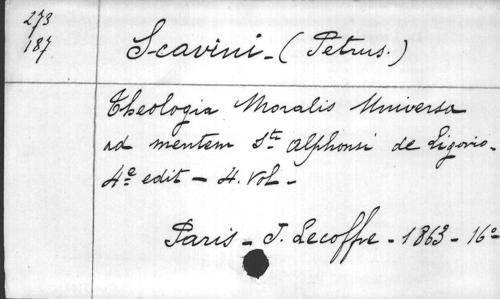 273
187
Scavini - (Petrus.)
Theologia Moralis Universa
ad mentem Sti Alphonsi de Ligorio.
4e edit - 4. vol -
Paris - J. Lecoffre - 1863 - 16o